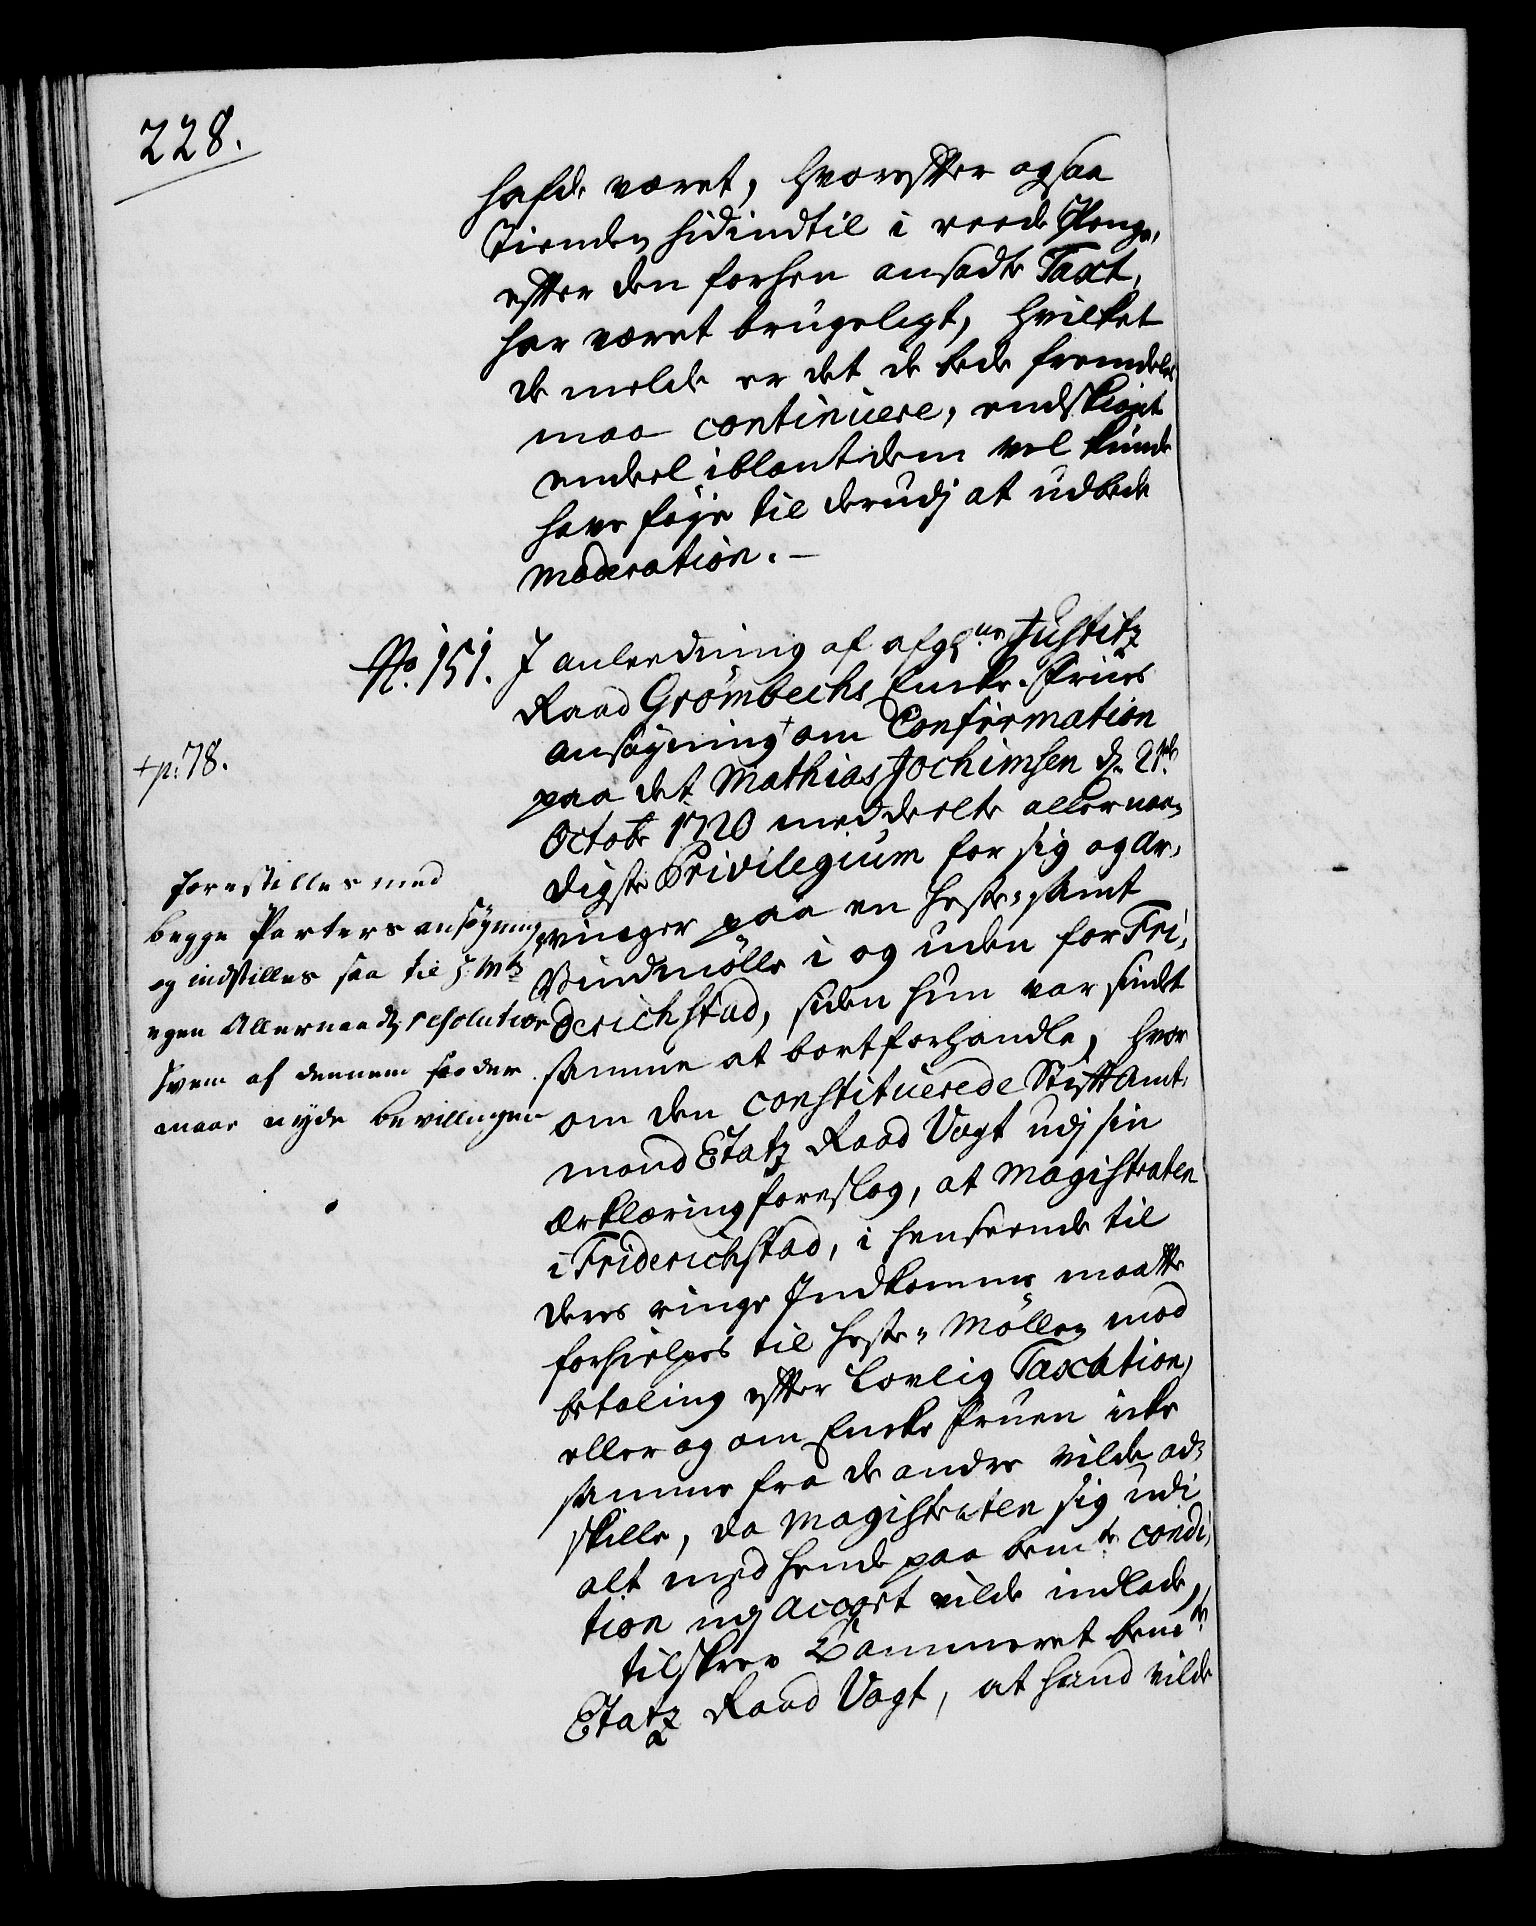 228.
hafde været, hvorefter ogsaa
Tienden hidindtil i reede Penge,
efter den forhen ansadte Taxt,
har været brugeligt, hvilket
de melde er det de bede fremdeles
maa continuere, endskiønt
endeel iblant dem vel kunde
have føje til derudj at udbede
Moderation. –
No. 151. J anleedning af afg: Justitz
Raad Grømbechs Encke-Frues
ansøgning + om Confirmation
+ p: 78.
paa det Mathias Jochimsen d. 21de
Octobr 1720 meddeelte allernaa-
digste Privilegium for sig og Ar-
vinger paa en Heste- samt
Vindmølle i og uden for Fri-
derichstad, siden hun var sindet
samme at bortforhandle, hvor
om den constituerede Stift Amt-
mand Etatz Raad Vogt udj sin
Erklæring foreslog, at Magistraten
i Friderichstad, i henseende til
deres ringe Indkomme maatte
forhielpes til Heste-Møllen mod
betaling efter Lovlig Taxation,
eller og om Encke Fruen icke
samme fra de andre vilde ad-
skille, da Magistraten sig udi
alt med hende paa bemte condi-
tion udj Accort vilde indlade,
tilskrev Cammeret bemte
Etatz Raad Vogt, at hand vilde
forestilles med
begge Parters ansøgning
og indstilles saa til H. Mts
egen Allernaadg resolution
hvem af dennem som der
maae nyde bevillingen